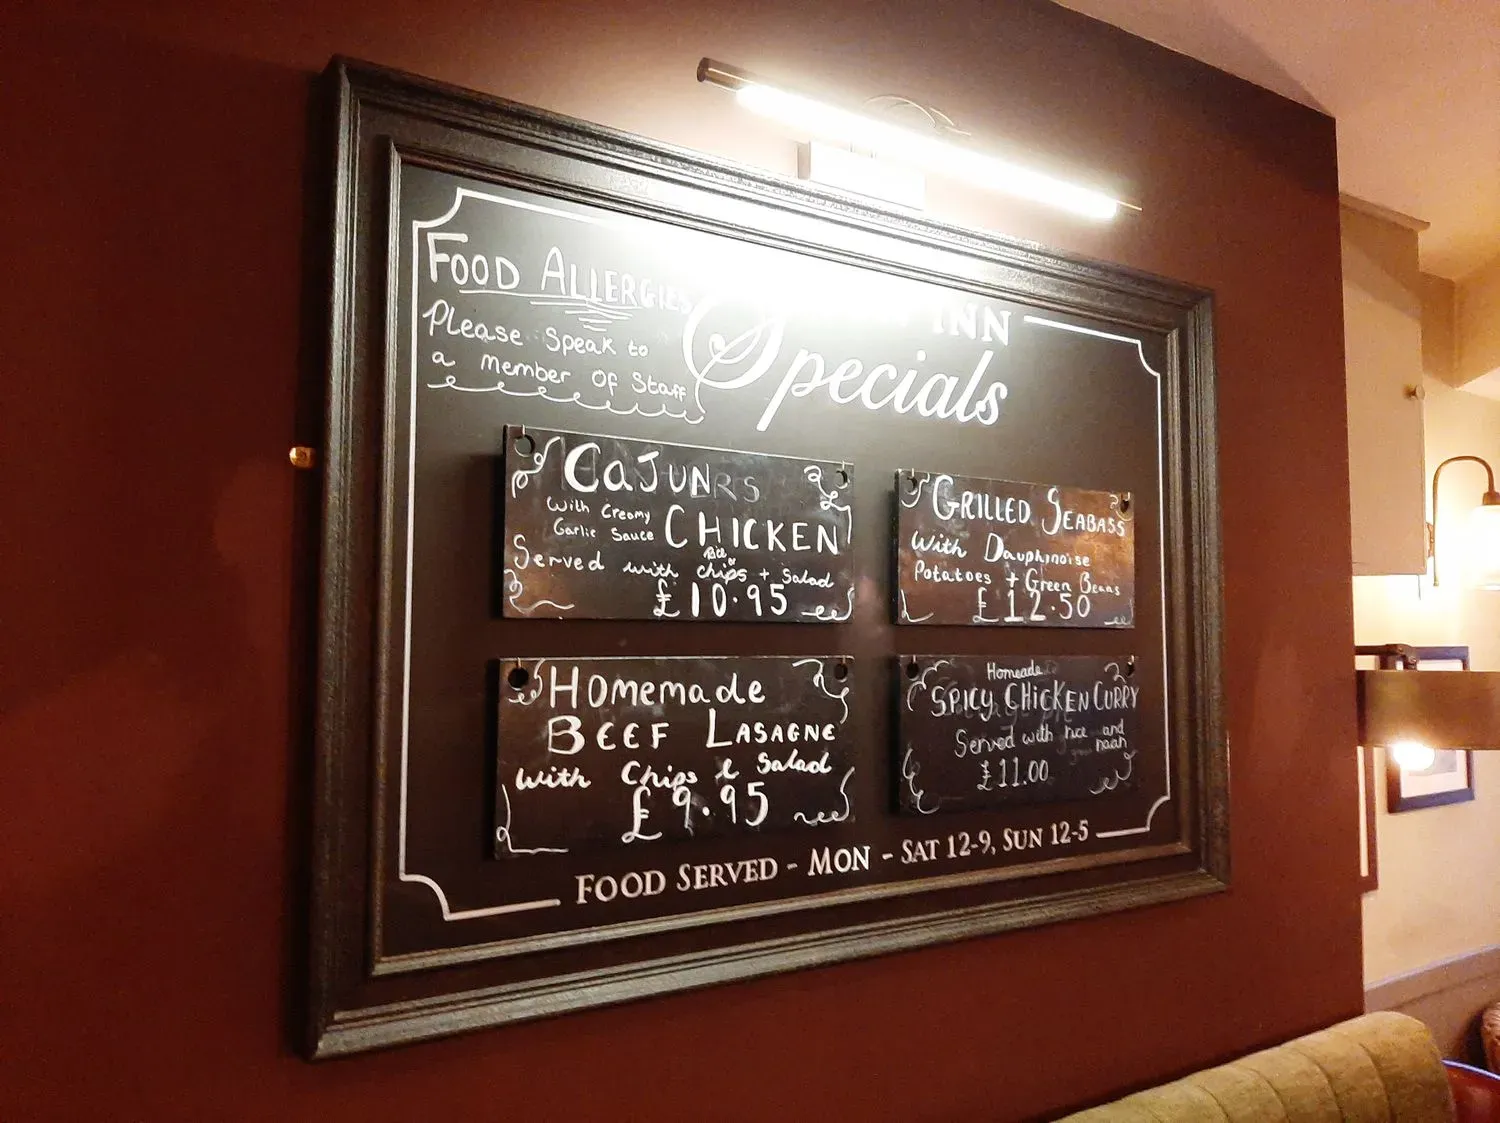 FOOD ALLERGIES
Please Speak to
a member Of Staff
INN
Specials
CAJUN
With Creamy
Garlic Sauce
CHICKEN
Rice
or
Served with chips + Salad
£10.95
GRILLED SEABASS
With Dauphinoise
Potatoes + Green Beans
£12.50
Homemade
BEEF LASAGNE
with Chips & Salad
£9.95
Homeade
SPICY CHICKEN CURRY
Served with rice and
naan
£11.00
FOOD SERVED - MON - SAT 12-9, SUN 12-5